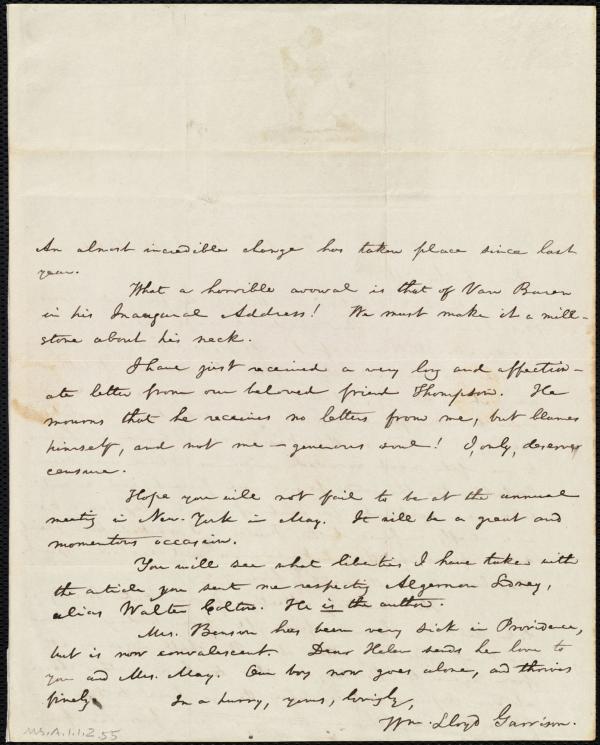 An almost incredible change has taken place since last
year.
What a horrible avowal is that of Van Buren
in his Inaugural Address! We must make it a mill-
stone about his neck.
I have just received a very long and affection-
ate letter from our beloved friend Thompson. He
mourns that he receives no letters from me, but blames
himself, and not me—generous soul! I, only, deserve
censure.
Hope you will not fail to be at the annual
meeting in New-York in May. It will be a great and
momentous occasion.
You will see what liberties I have taken with
the article you sent me respecting Algernon Sidney,
alias Walter Colton. He is the author.
Mrs. Benson has been very sick in Providence,
but is now convalescent. Dear Helen sends her love to
you and Mrs. May. Our boy now goes alone, and thrives
finely. In a hurry, yours, lovingly,
Wm. Lloyd Garrison.
MS.A.1.1.2.55